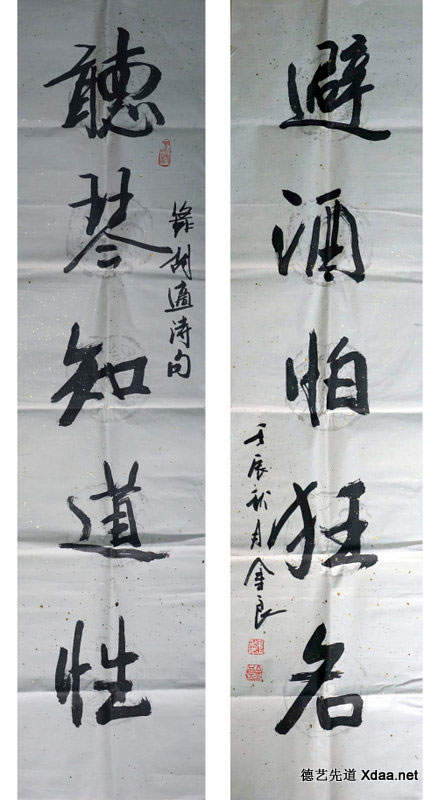 聽琴知道性
錄胡適詩句
避酒怕狂名
壬辰秋月金良
德艺先道 Xdaa.net